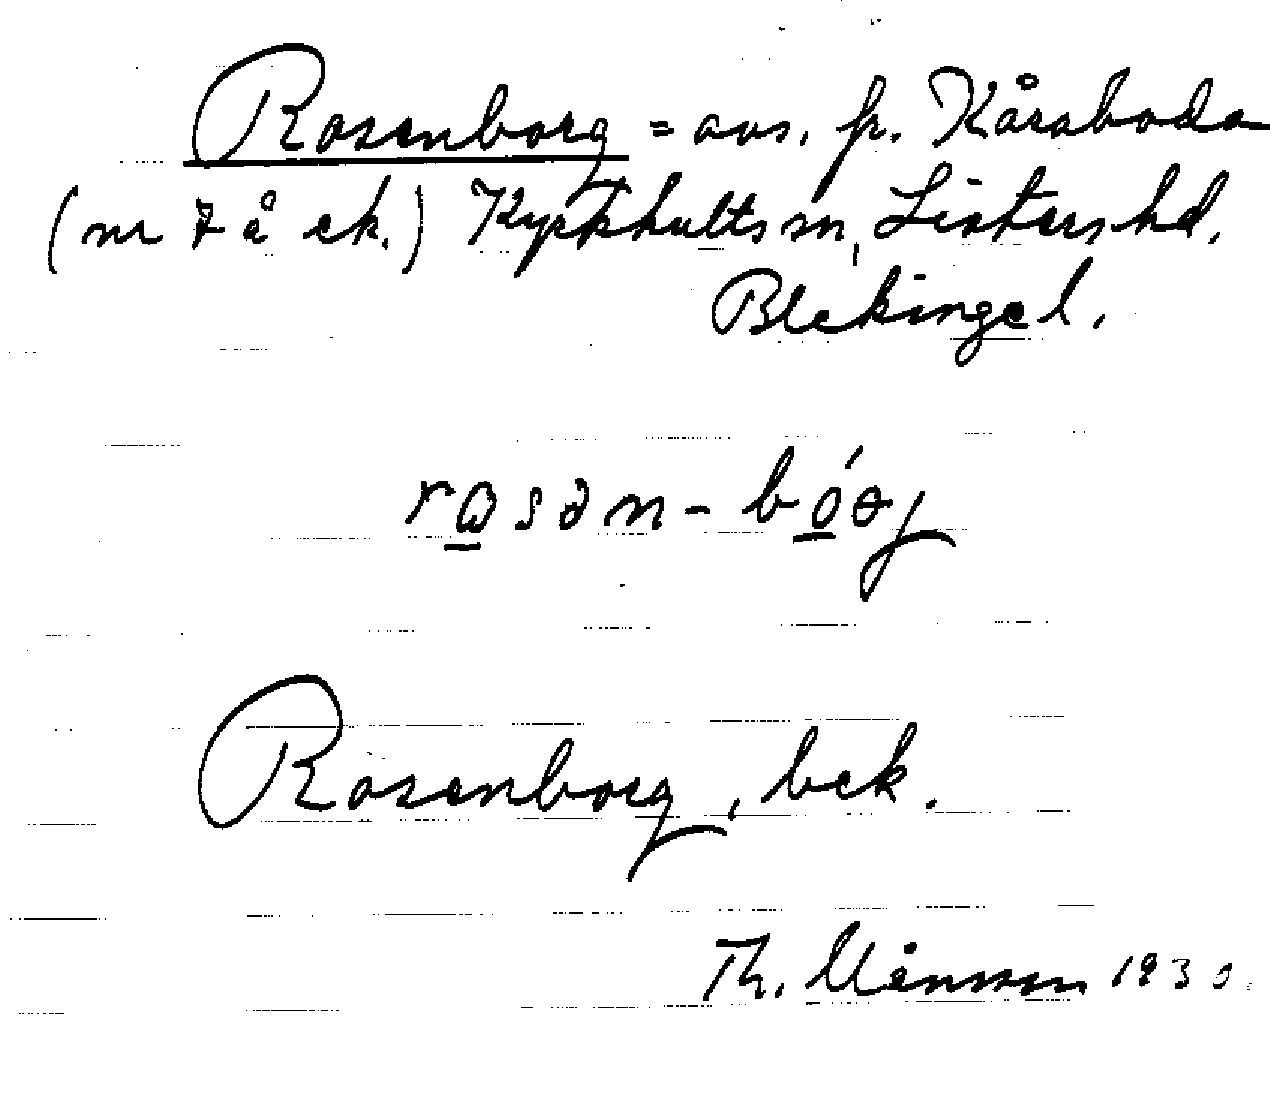 Rosenborg = avs. fr. Kåraboda
(nr 7 å ek.) Kyrkhults sn, Listers hd,
Blekinge l.
rɷsən-bóəj
Rosenborg, bek.
Th. Månsson 1930.